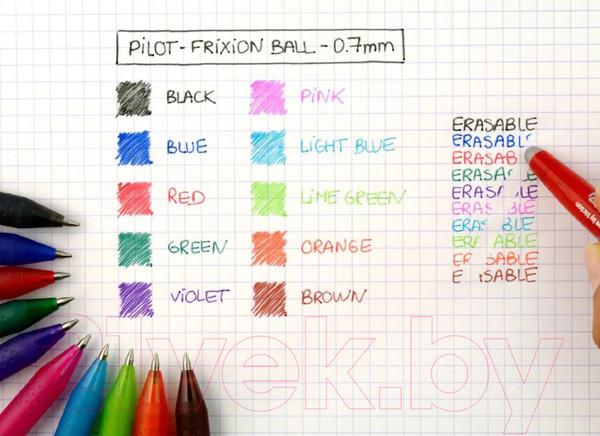 PILOT - FRIXION BALL - 0.7mm
BLACK
BLUE
RED
GREEN
VIOLET
PINK
LIGHT BLUE
LIME GREEN
ORANGE
BROWN
ERASABLE
ERASABL
ERASAB
ERASA LE
ERASA BLE
ERAS BLE
ERAS BLE
ERA ABLE
ER SABLE
E SABLE
21vek.by